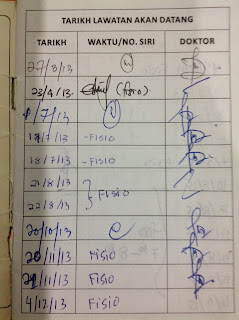 TARIKH LAWATAN AKAN DATANG
TARIKH WAKTU/NO. SIRI DOKTOR
27/3/13
23/4/13 (Fisio)
1/7/13
17/7/13 -FISIO
18/7/13 -FISIO
21/8/13
FISIO
22/8/13
20/10/13
20/11/13 FISIO
21/11/13 FISIO
4/12/13 FISIO